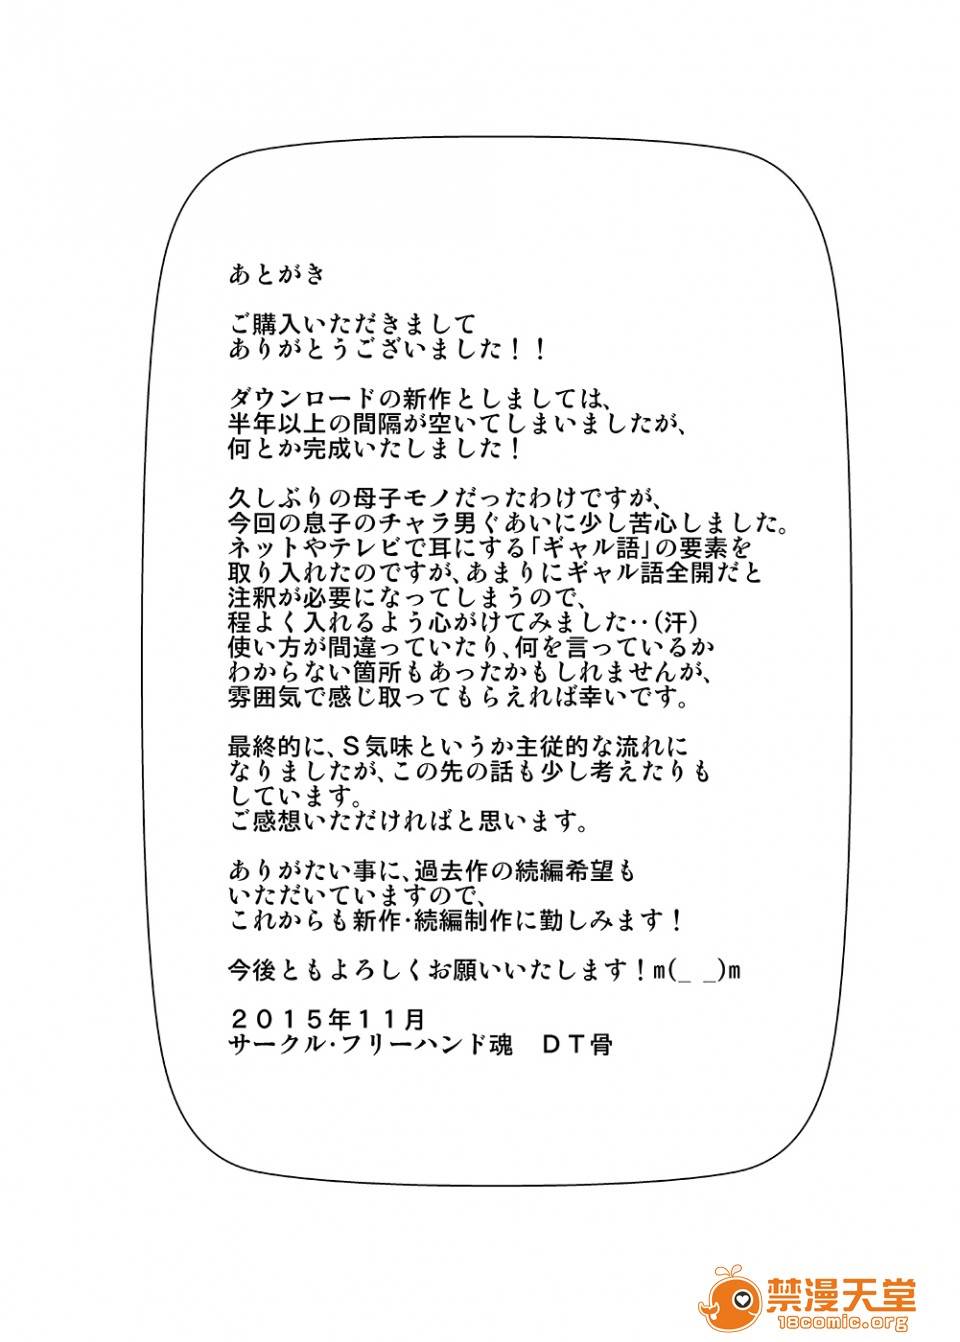 あとがき
ご購入いただきまして
ありがとうございました！！
ダウンロードの新作としましては、
半年以上の間隔が空いてしまいましたが、
何とか完成いたしました！
久しぶりの母子モノだったわけですが、
今回の息子のチャラ男ぐあいに少し苦心しました。
ネットやテレビで耳にする「ギャル語」の要素を
取り入れたのですが、あまりにギャル語全開だと
注釈が必要になってしまうので、
程よく入れるよう心がけてみました‥(汗)
使い方が間違っていたり、何を言っているか
わからない箇所もあったかもしれませんが、
雰囲気で感じ取ってもらえれば幸いです。
最終的に、Ｓ気味というか主従的な流れに
なりましたが、この先の話も少し考えたりも
しています。
ご感想いただければと思います。
ありがたい事に、過去作の続編希望も
いただいていますので、
これからも新作・続編制作に勤しみます！
今後ともよろしくお願いいたします！m(_ _)m
２０１５年１１月
サークル・フリーハンド魂　ＤＴ骨
禁漫天堂
18comic.org